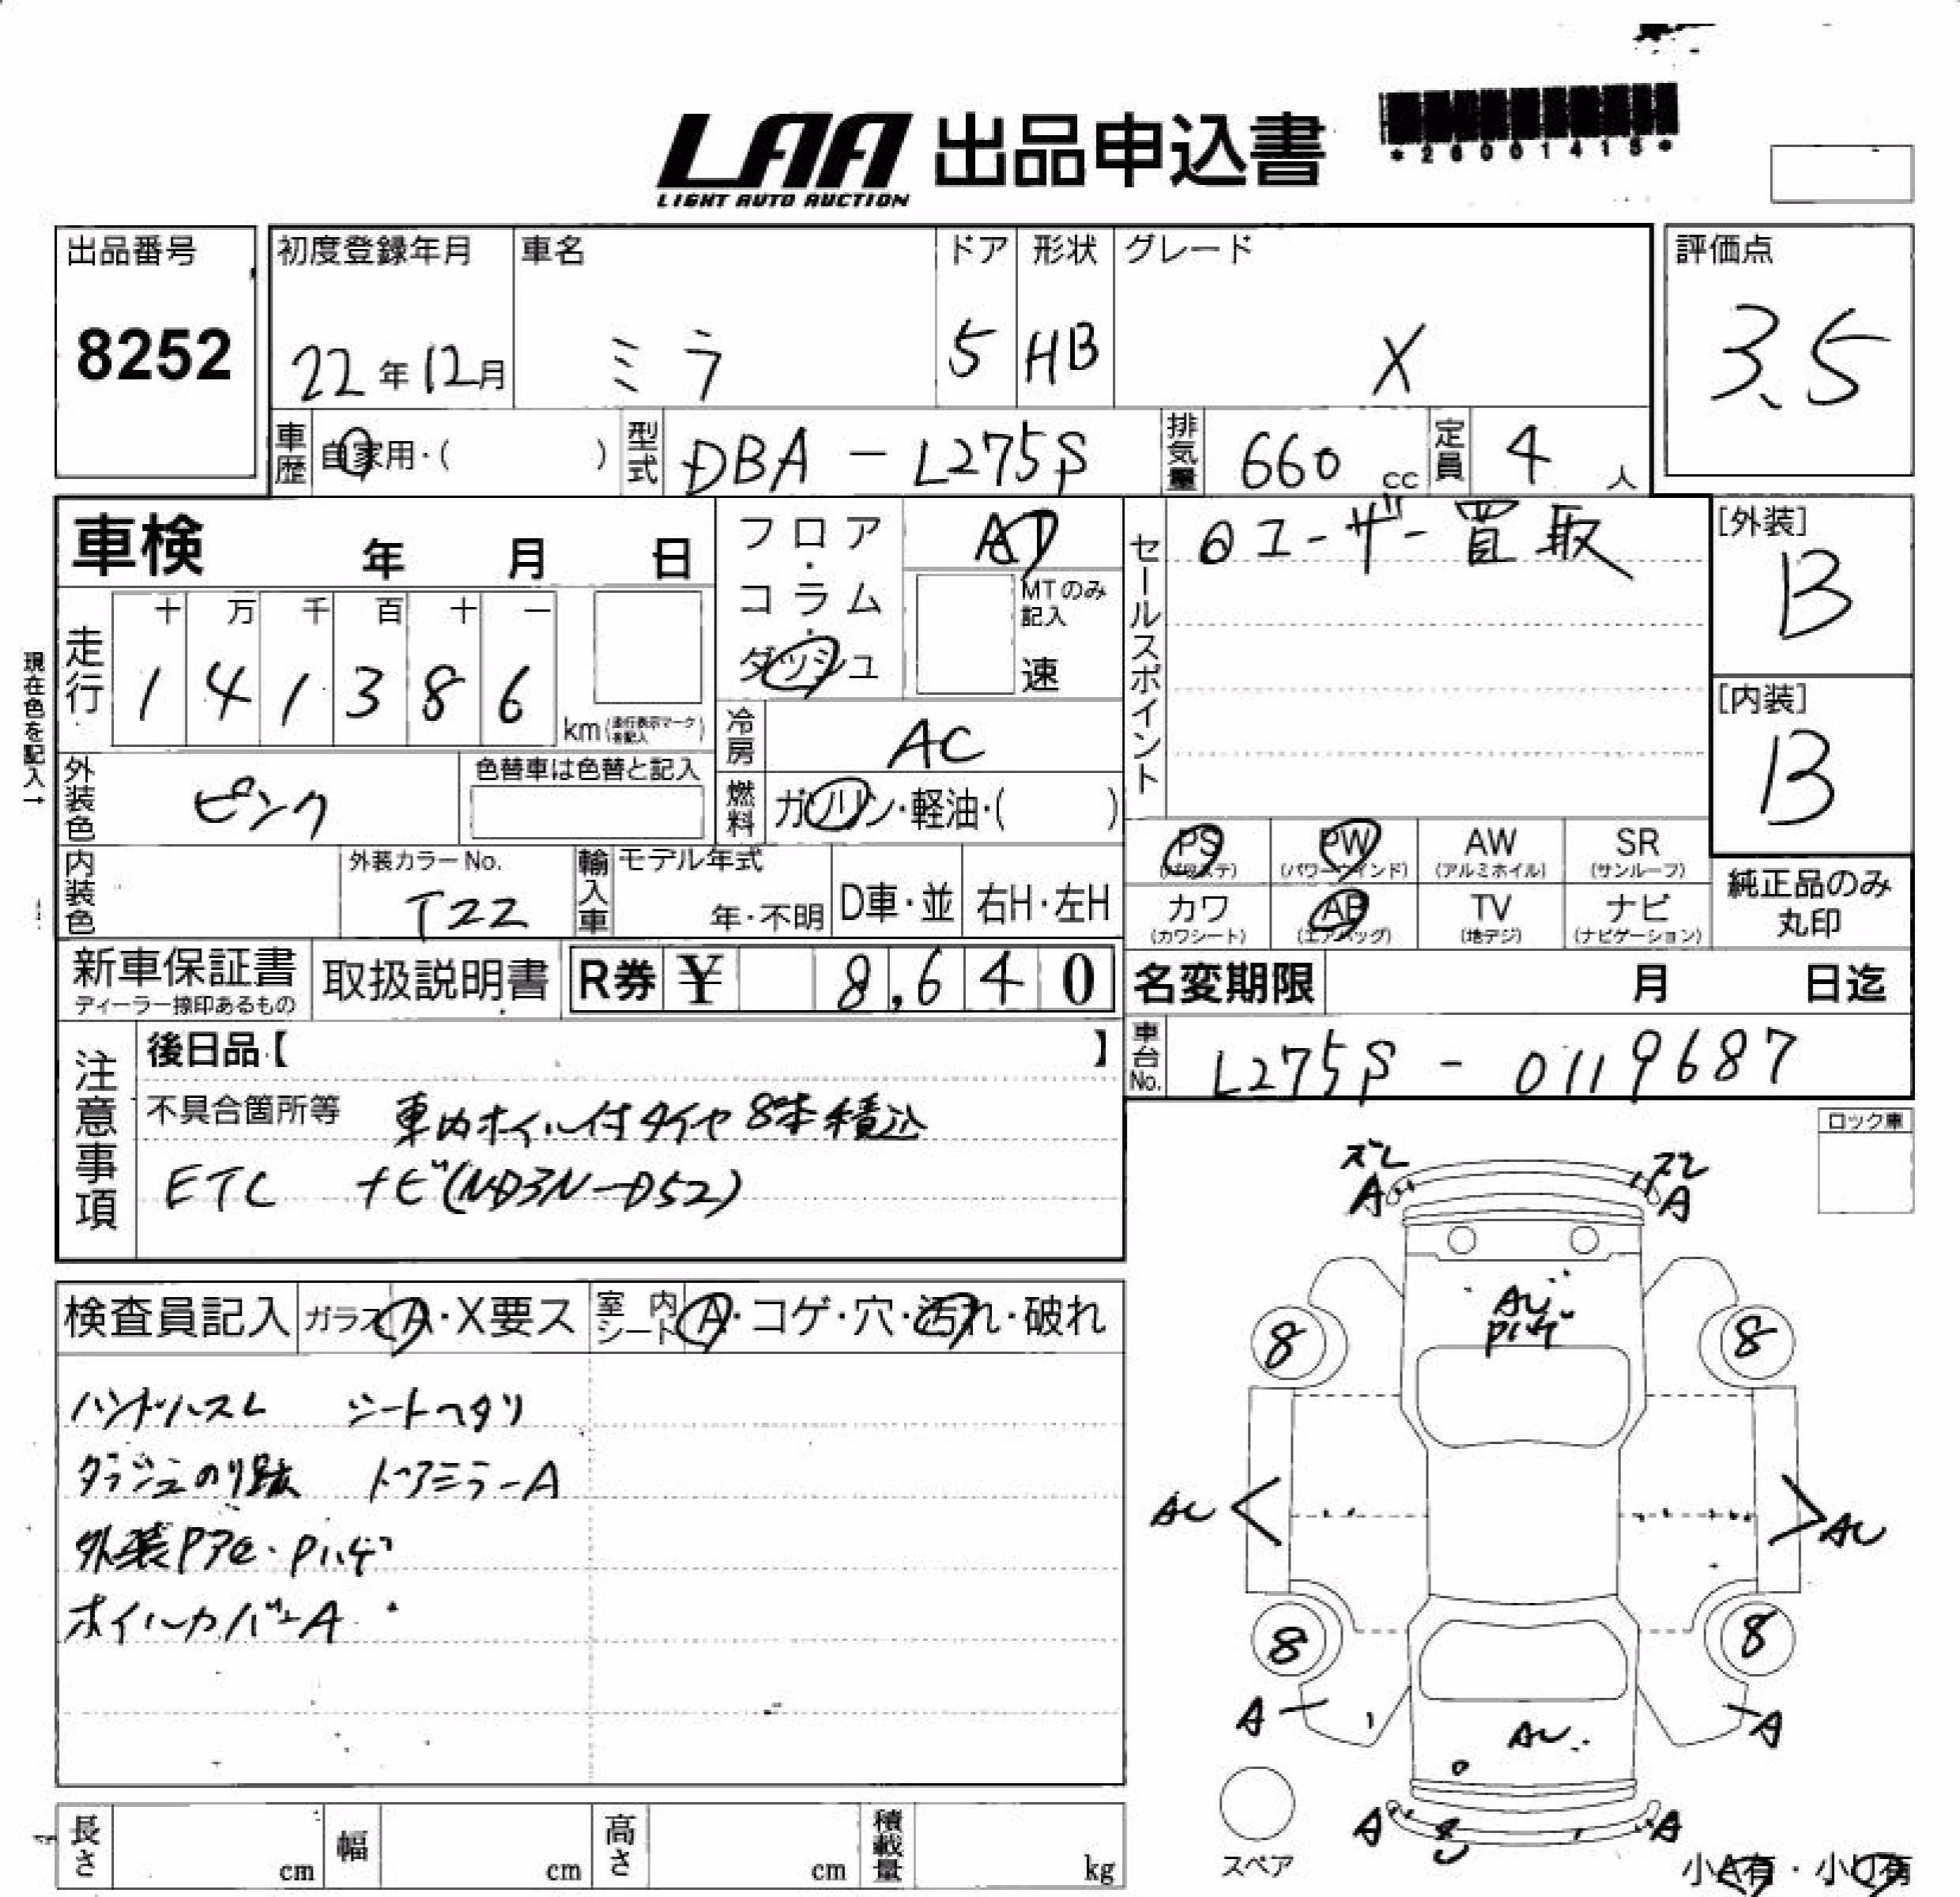 LAA 出品申込書
LIGHT AUTO AUCTION
出品番号
8252
初度登録年月
22年12月
車名
ミラ
ドア
5
形状
HB
グレード
X
評価点
3.5
車歴 自家用・( )
型式 DBA - L275S
排気量 660 cc
定員 4 人
車検 年 月 日
走行
十 万 千 百 十 一
1 4 1 3 8 6
km(走行表示マークを記入)
現在色を記入→
フロア・コラム・ダッシュ
AT
MTのみ記入
速
冷房 AC
燃料 ガソリン・軽油・( )
外装色 ピンク
色替車は色替と記入
内装色
外装カラーNo.
T22
輸入車 モデル年式
年・不明
D車・並
右H・左H
セールスポイント
ユーザー買取
[外装]
B
[内装]
B
PS
(パワステ)
PW
(パワーウインド)
AW
(アルミホイル)
SR
(サンルーフ)
カワ
(カワシート)
AB
(エアバッグ)
TV
(地デジ)
ナビ
(ナビゲーション)
純正品のみ
丸印
新車保証書
ディーラー捺印あるもの
取扱説明書
R券 ¥ 8,640
名変期限 月 日迄
車台No. L275S - 0119687
注意事項
後日品【 】
不具合箇所等 車内ホイル付タイヤ8本積込
ETC ナビ(ND3N-D52)
ロック車
検査員記入
ガラス A・X要ス
室内シート A・コゲ・穴・汚れ・破れ
ハンドルスレ シートヘタリ
ダッシュのり跡 ドアミラーA
外装Pアセ・Pハゲ
ホイルカバーA
ズレ ズレ
A A
AU
Pハゲ
8 8
AU AU
8 8
A A
AU
A A
スペア
長さ cm
幅 cm
高さ cm
積載量 kg
小A有・小U有